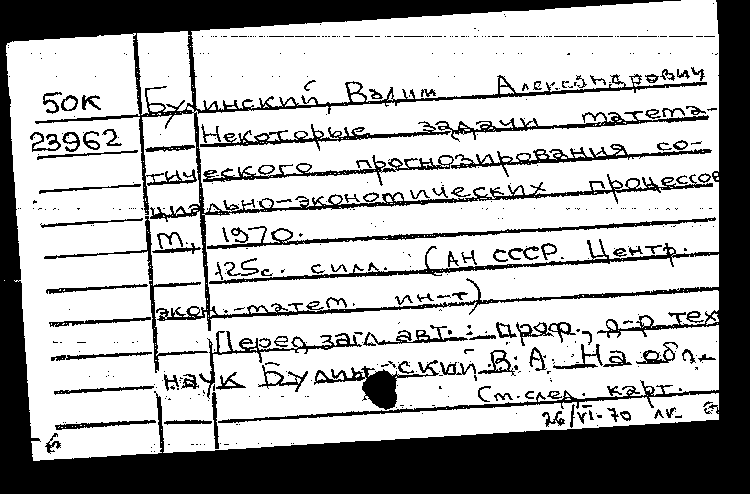 50К Булинский, Вадим Александрович
23962 Некоторые задачи матема-
тического прогнозирования со-
циально-экономических процессов
М., 1970.
125с. с илл. (АН СССР. Центр.
экон.-матем. ин-т)
Перед загл. авт.: проф., д-р тех
наук Булинский В. А. На обл.
См. след. карт.
26/VI-70 лк